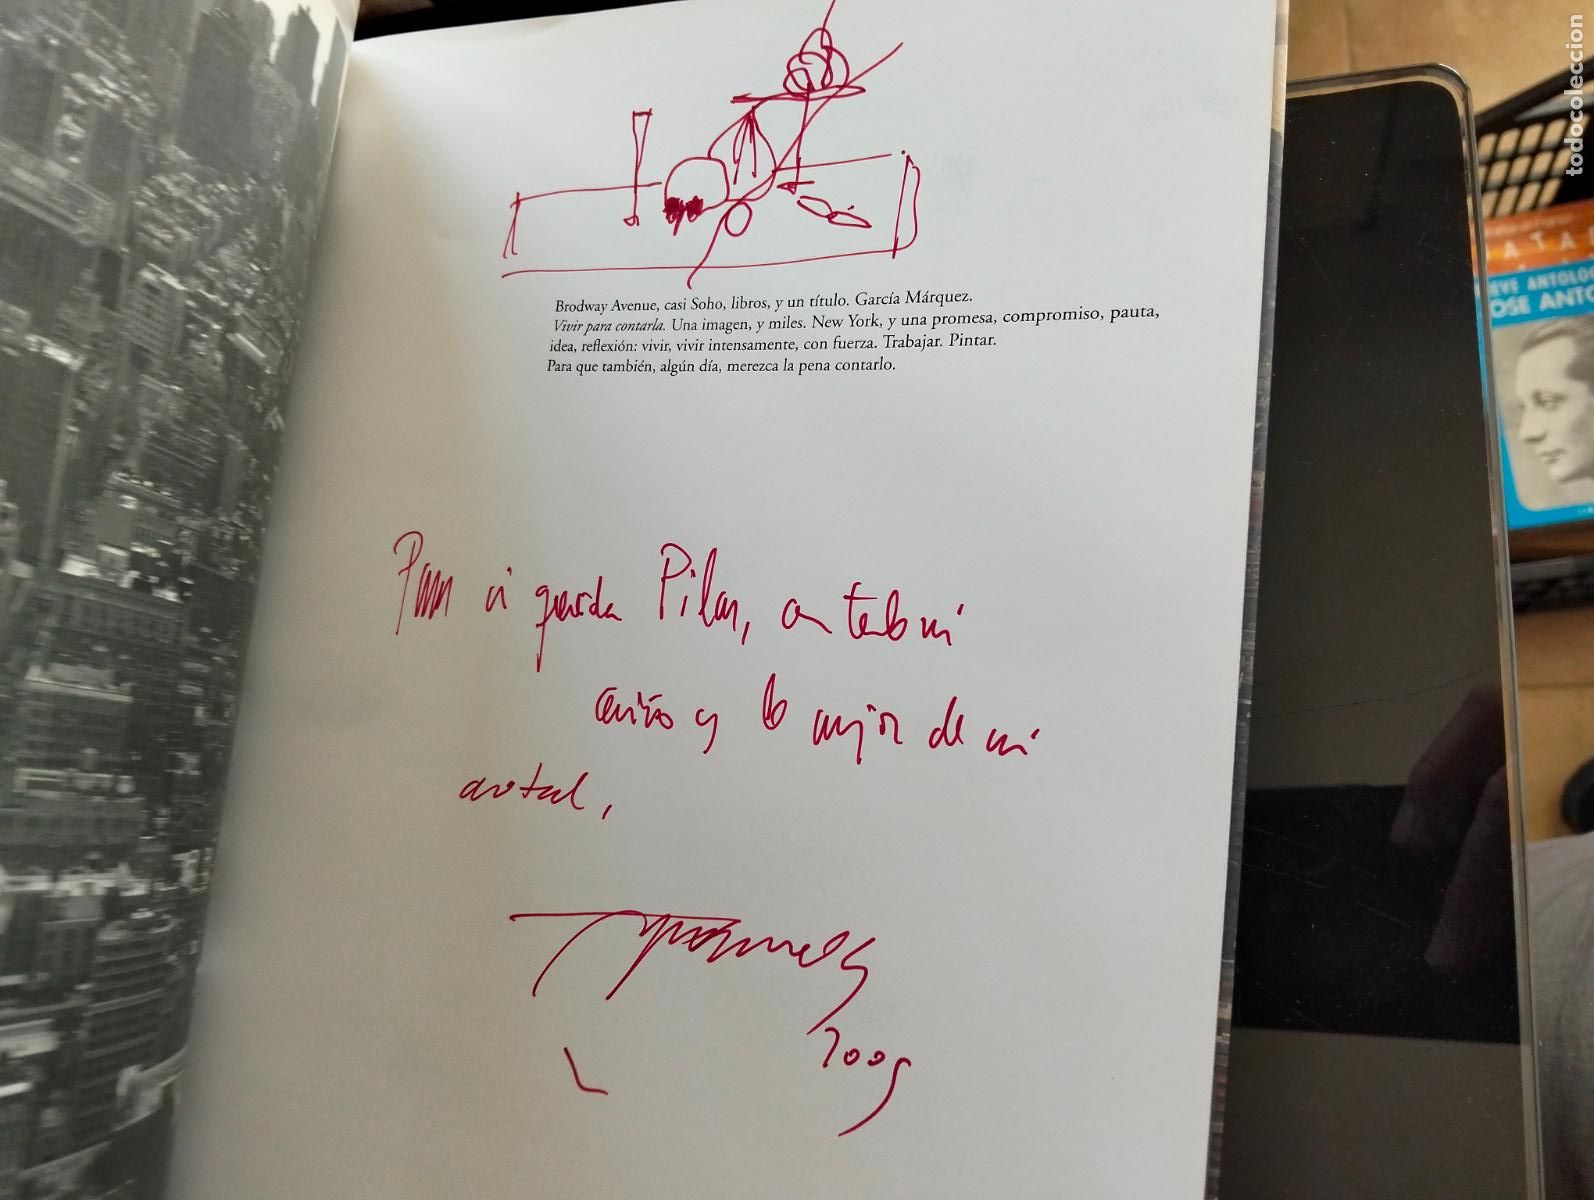 Brodway Avenue, casi Soho, libros, y un título. García Márquez.
Vivir para contarla. Una imagen, y miles. New York, y una promesa, compromiso, pauta,
idea, reflexión: vivir, vivir intensamente, con fuerza. Trabajar. Pintar.
Para que también, algún día, merezca la pena contarlo.
Para mi querida Pilar, con todo mi
cariño y lo mejor de mi
todocoleccion
ATA
EVE ANTOLO
OSE ANTO